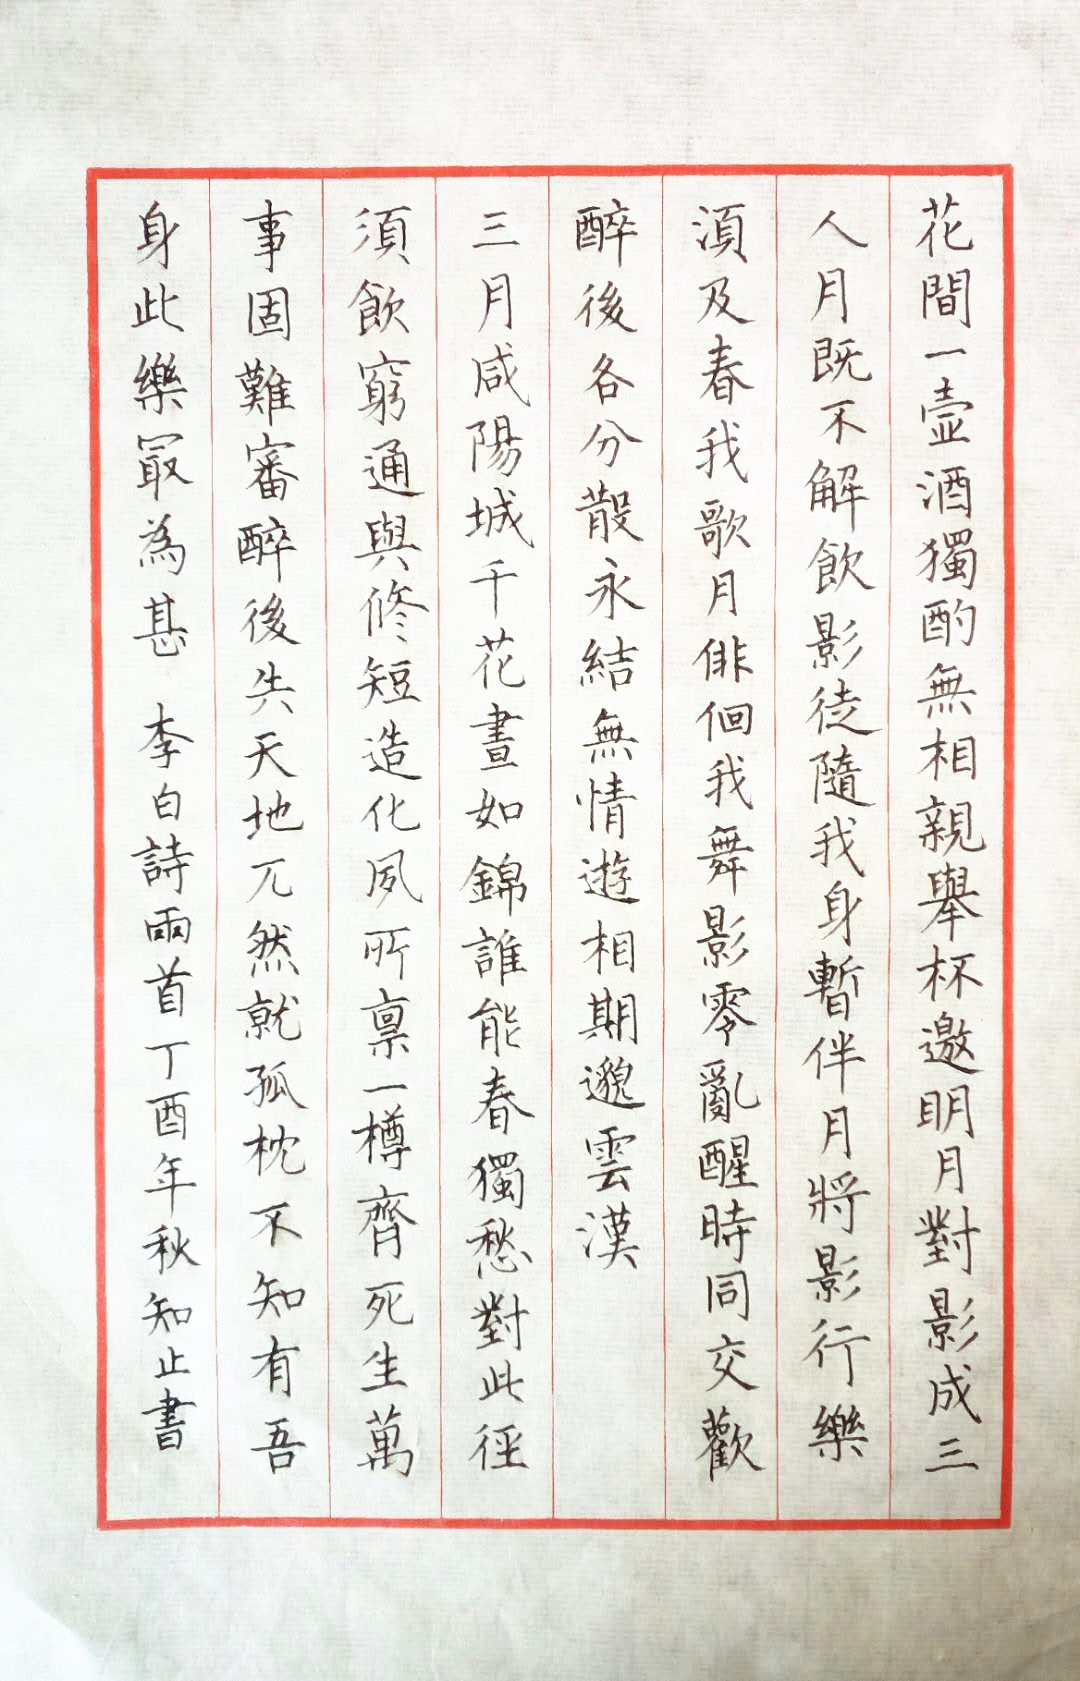 花間一壼酒獨酌無相親舉杯邀明月對影成三
人月既不解飲影徒隨我身暫伴月將影行樂
湏及春我歌月俳佪我舞影零亂醒時同交歡
醉後各分散永結無情遊相期邈雲漢
三月咸陽城千花晝如錦誰能春獨愁對此徑
須飲窮通與修短造化夙所禀一樽齊死生萬
事固難審醉後失天地兀然就孤枕不知有吾
身此樂冣為甚 李白詩兩首丁酉年秋知止書